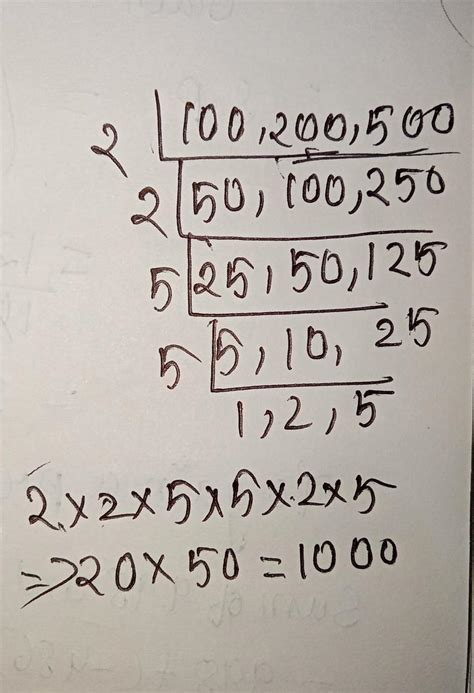 2 | 100, 200, 500
2 | 50, 100, 250
5 | 25, 50, 125
5 | 5, 10, 25
1, 2, 5
2 x 2 x 5 x 5 x 2 x 5
=> 20 x 50 = 1000